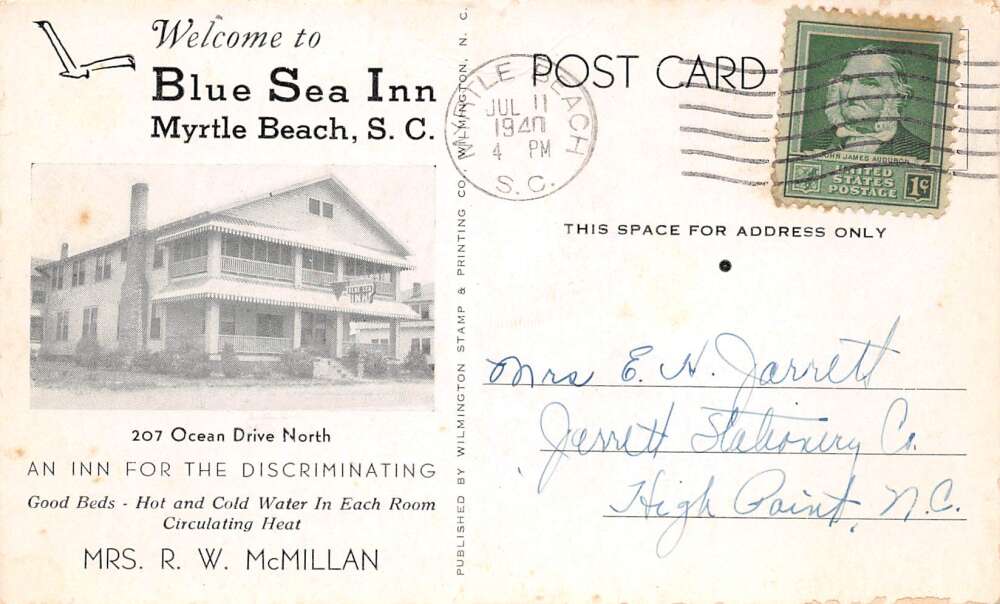 Welcome to
Blue Sea Inn
Myrtle Beach, S. C.
BLUE SEA
INN
207 Ocean Drive North
AN INN FOR THE DISCRIMINATING
Good Beds - Hot and Cold Water In Each Room
Circulating Heat
MRS. R. W. McMILLAN
PUBLISHED BY WILMINGTON STAMP & PRINTING CO., WILMINGTON, N. C.
POST CARD
MYRTLE BEACH
JUL 11
1940
4 PM
S. C.
JOHN JAMES AUDUBON
UNITED
STATES
POSTAGE
1¢
THIS SPACE FOR ADDRESS ONLY
Mrs E. H. Jarrett
Jarrett Stationery Co.
High Point, N.C.